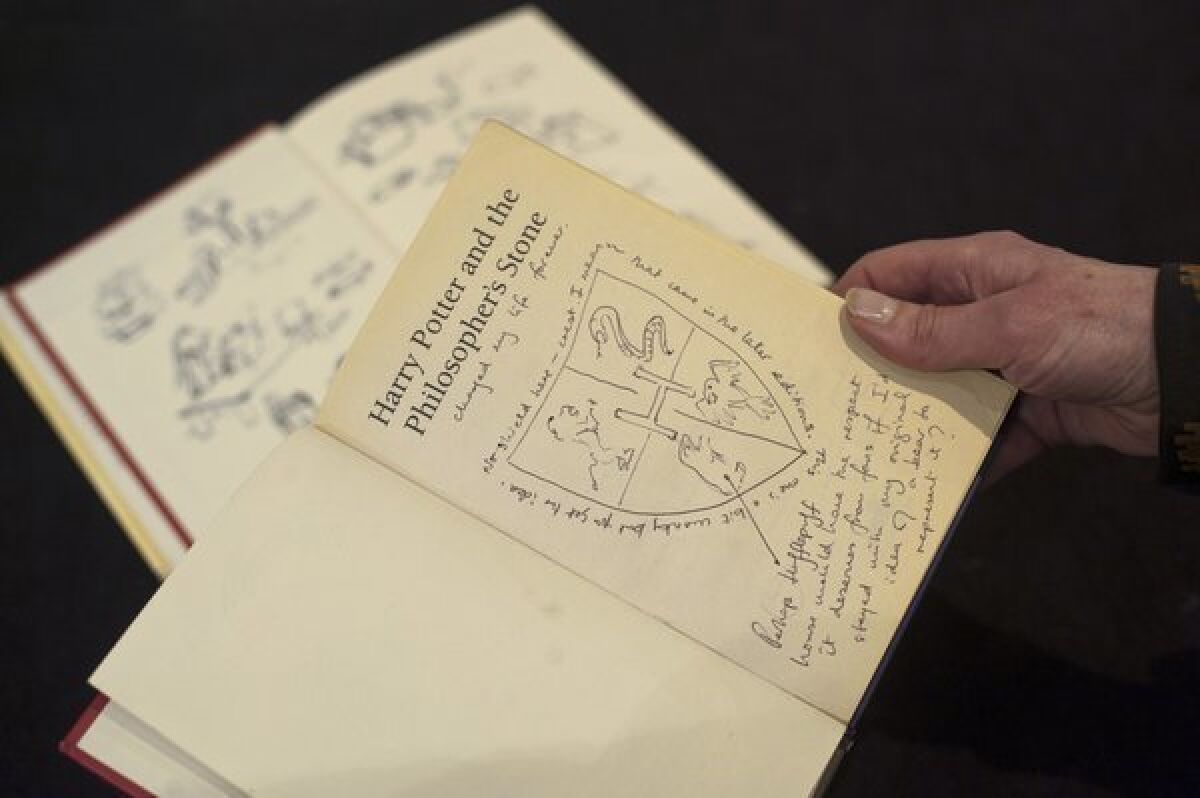 Harry Potter and the
Philosopher's Stone
changed my life forever.
No shield here – what I mean
is that came in the later editions.
one's a bit wonky but you get the idea.
Perhaps Hufflepuff
house would have the respect
it deserves from fans if I'd
stayed with my original
idea of a bear to
represent it?